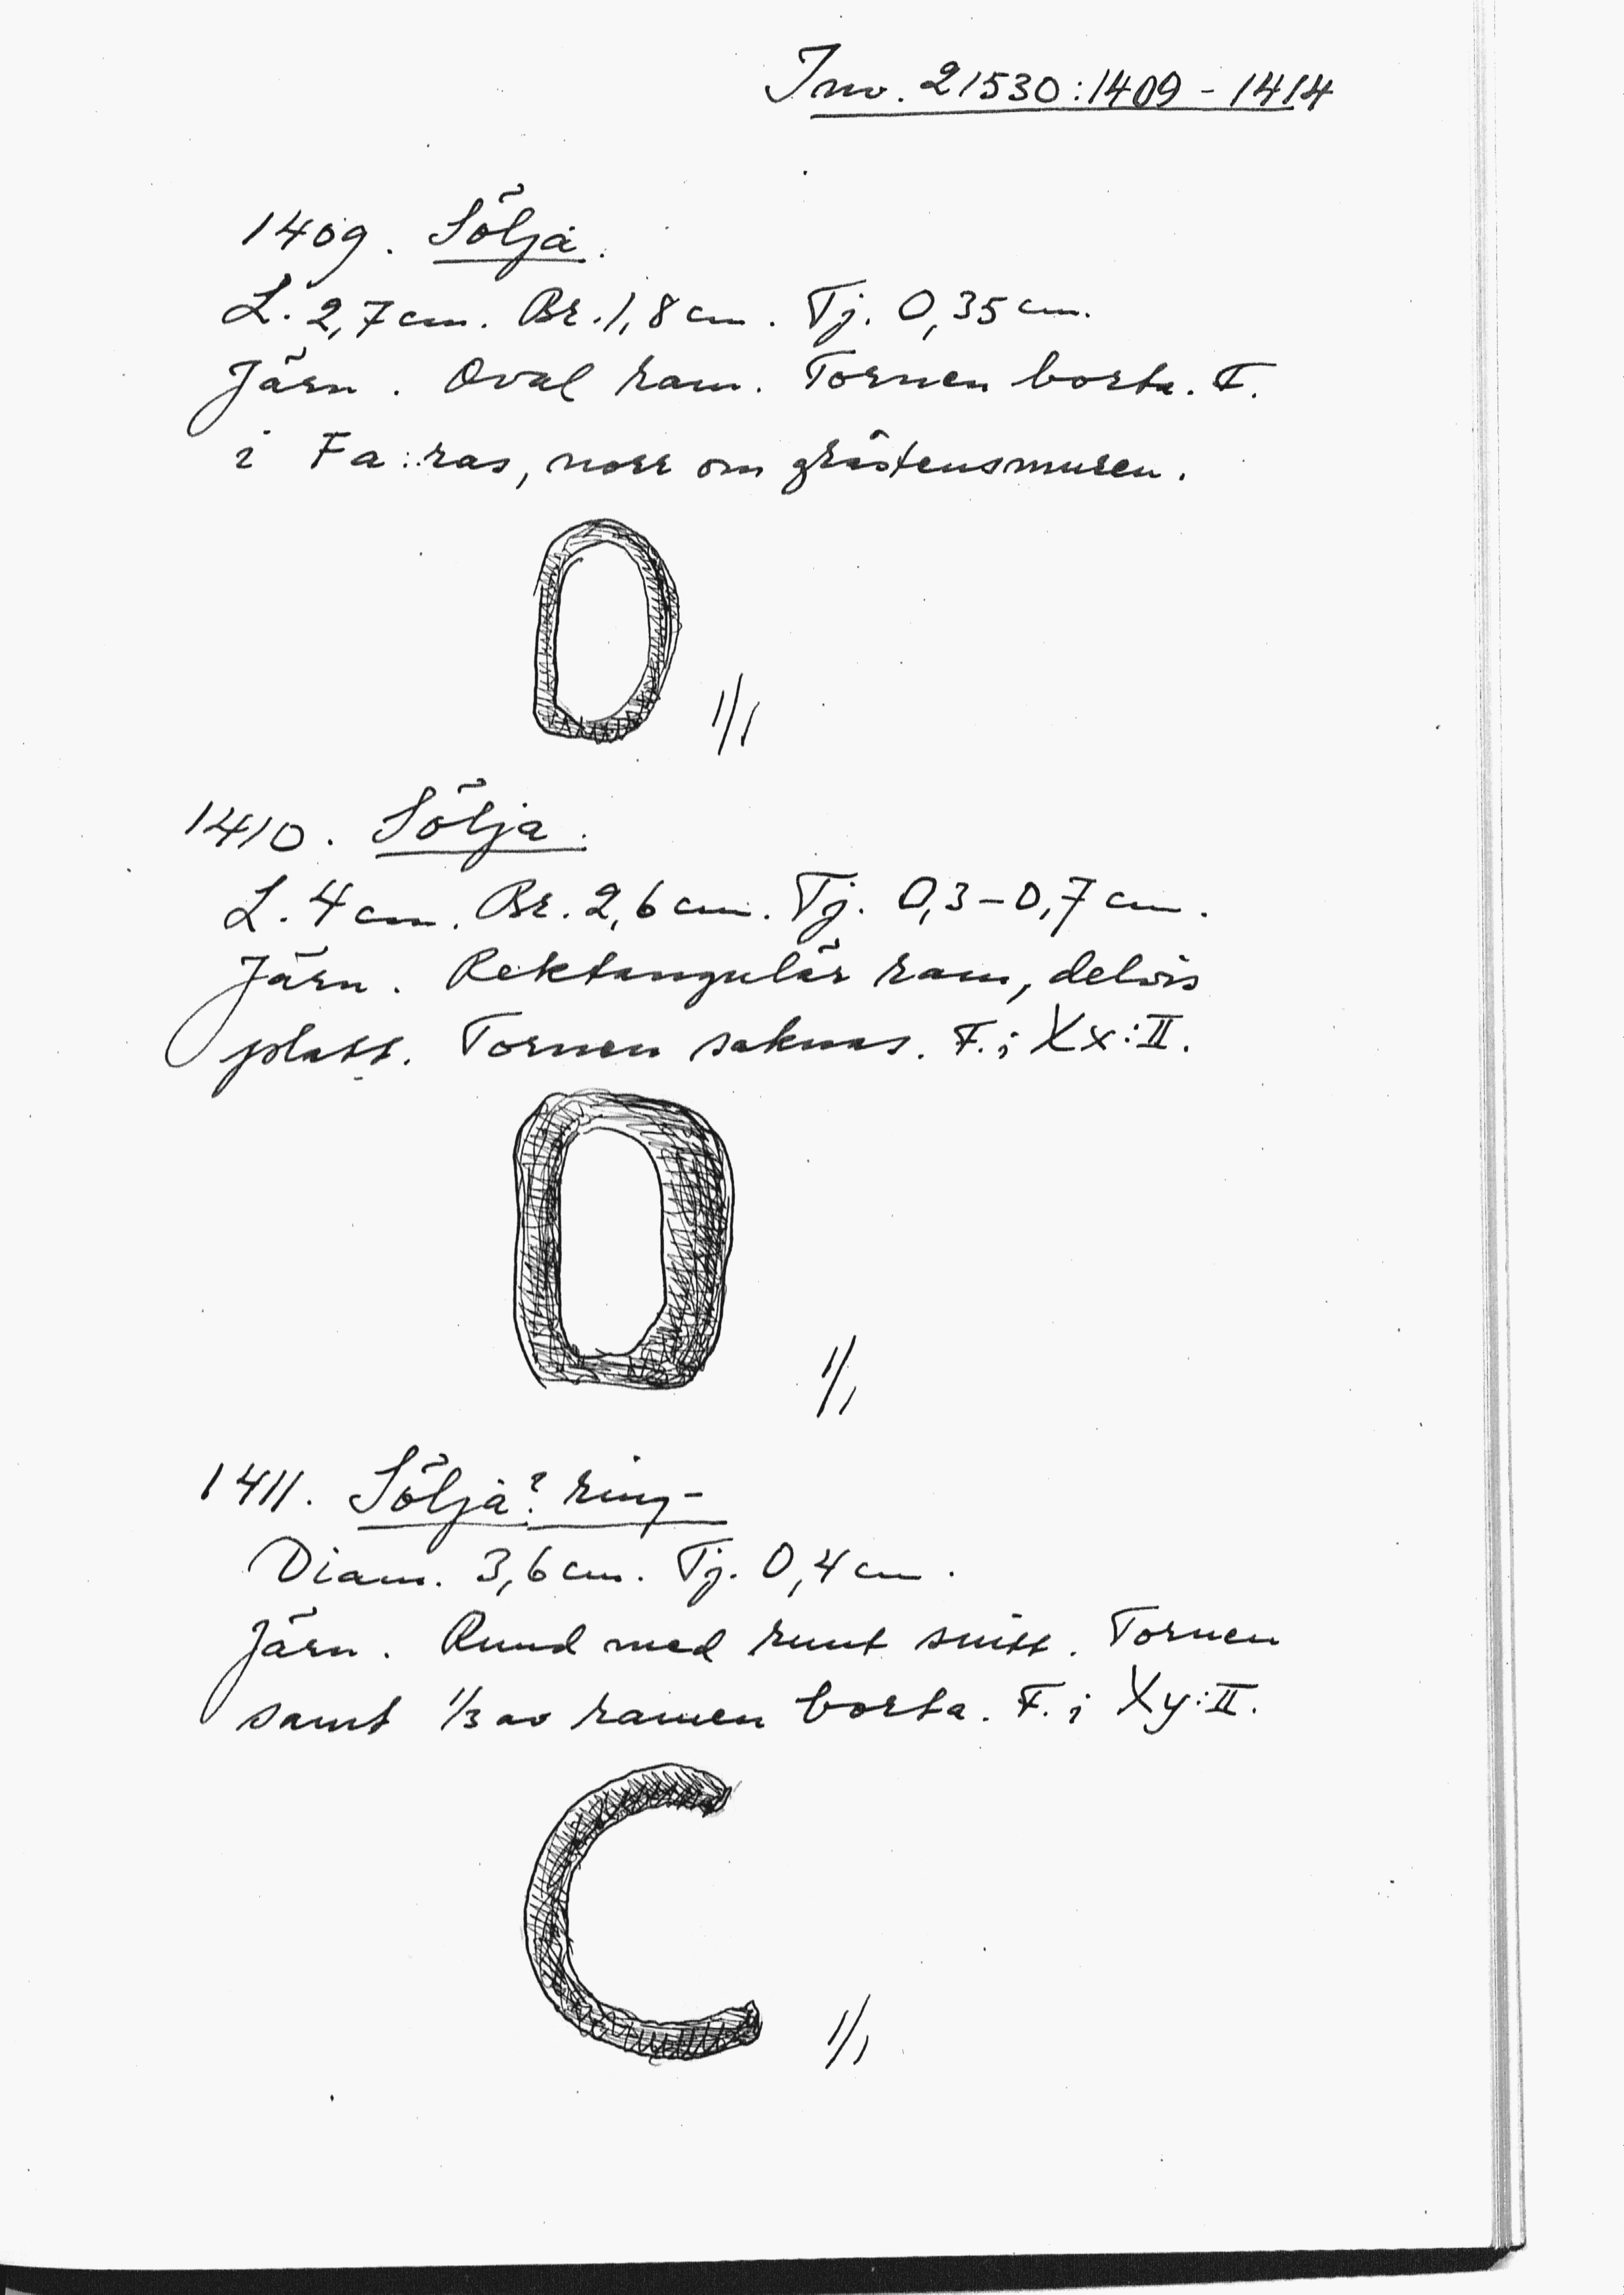 Inv. 21530:1409-1414
1409. Sölja.
L. 2,7 cm. Br. 1,8 cm. Tj. 0,35 cm.
Järn. Oval ram. Tornen borta. F.
i Fa:ras, norr om gråstensmuren.
1/1
1410. Sölja.
L. 4 cm. Br. 2,6 cm. Tj. 0,3-0,7 cm.
Järn. Rektangulär ram, delvis
platt. Tornen saknas. F. i Xx:II.
1/1
1411. Sölja? ring-
Diam. 3,6 cm. Tj. 0,4 cm.
Järn. Rund med runt snitt. Tornen
samt 1/3 av ramen borta. F. i Xy:II.
1/1